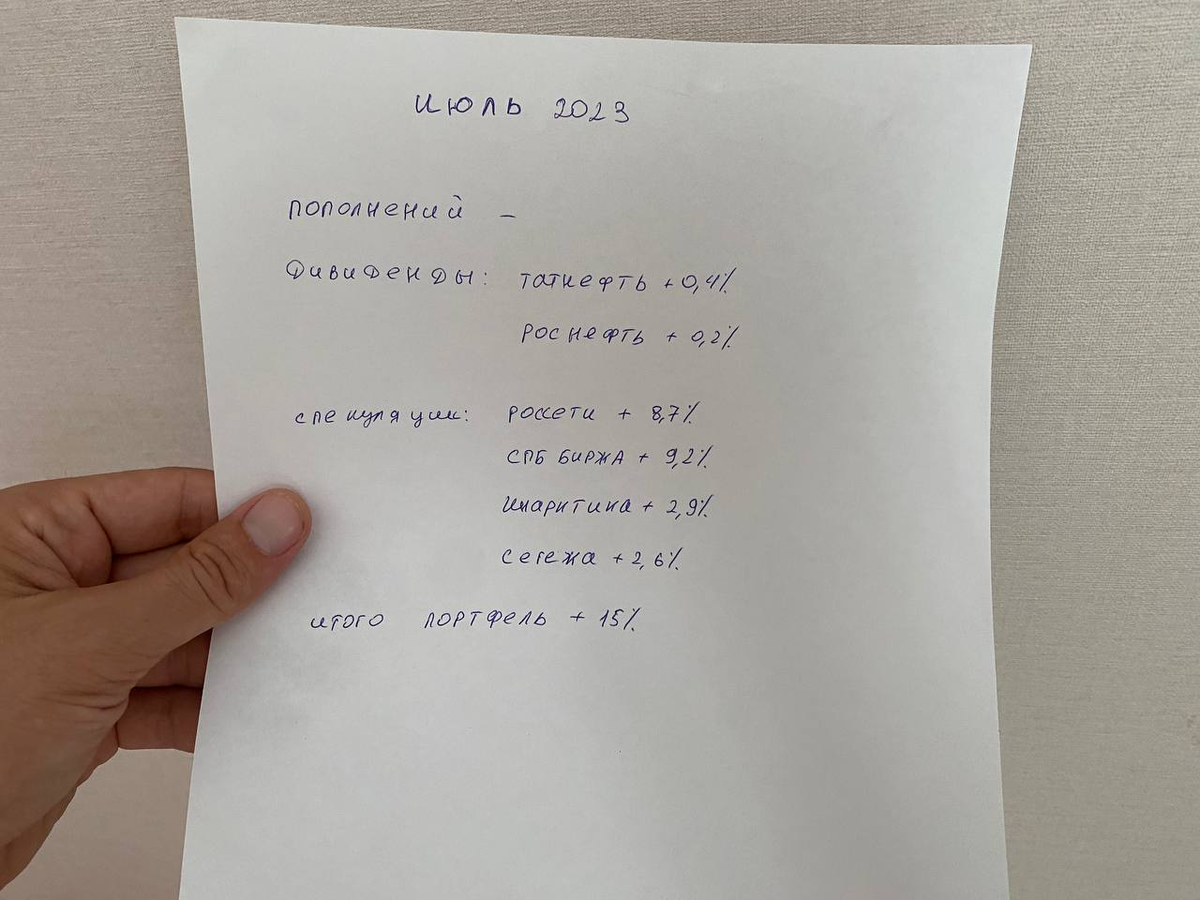 ИЮЛЬ 2023
ПОПОЛНЕНИЙ –
ДИВИДЕНДЫ: ТАТНЕФТЬ + 0,4%
РОСНЕФТЬ + 0,2%
СПЕКУЛЯЦИИ: РОССЕТИ + 8,7%
СПБ БИРЖА + 9,2%
ИНАРКТИКА + 2,9%
СЕГЕЖА + 2,6%
ИТОГО ПОРТФЕЛЬ + 15%